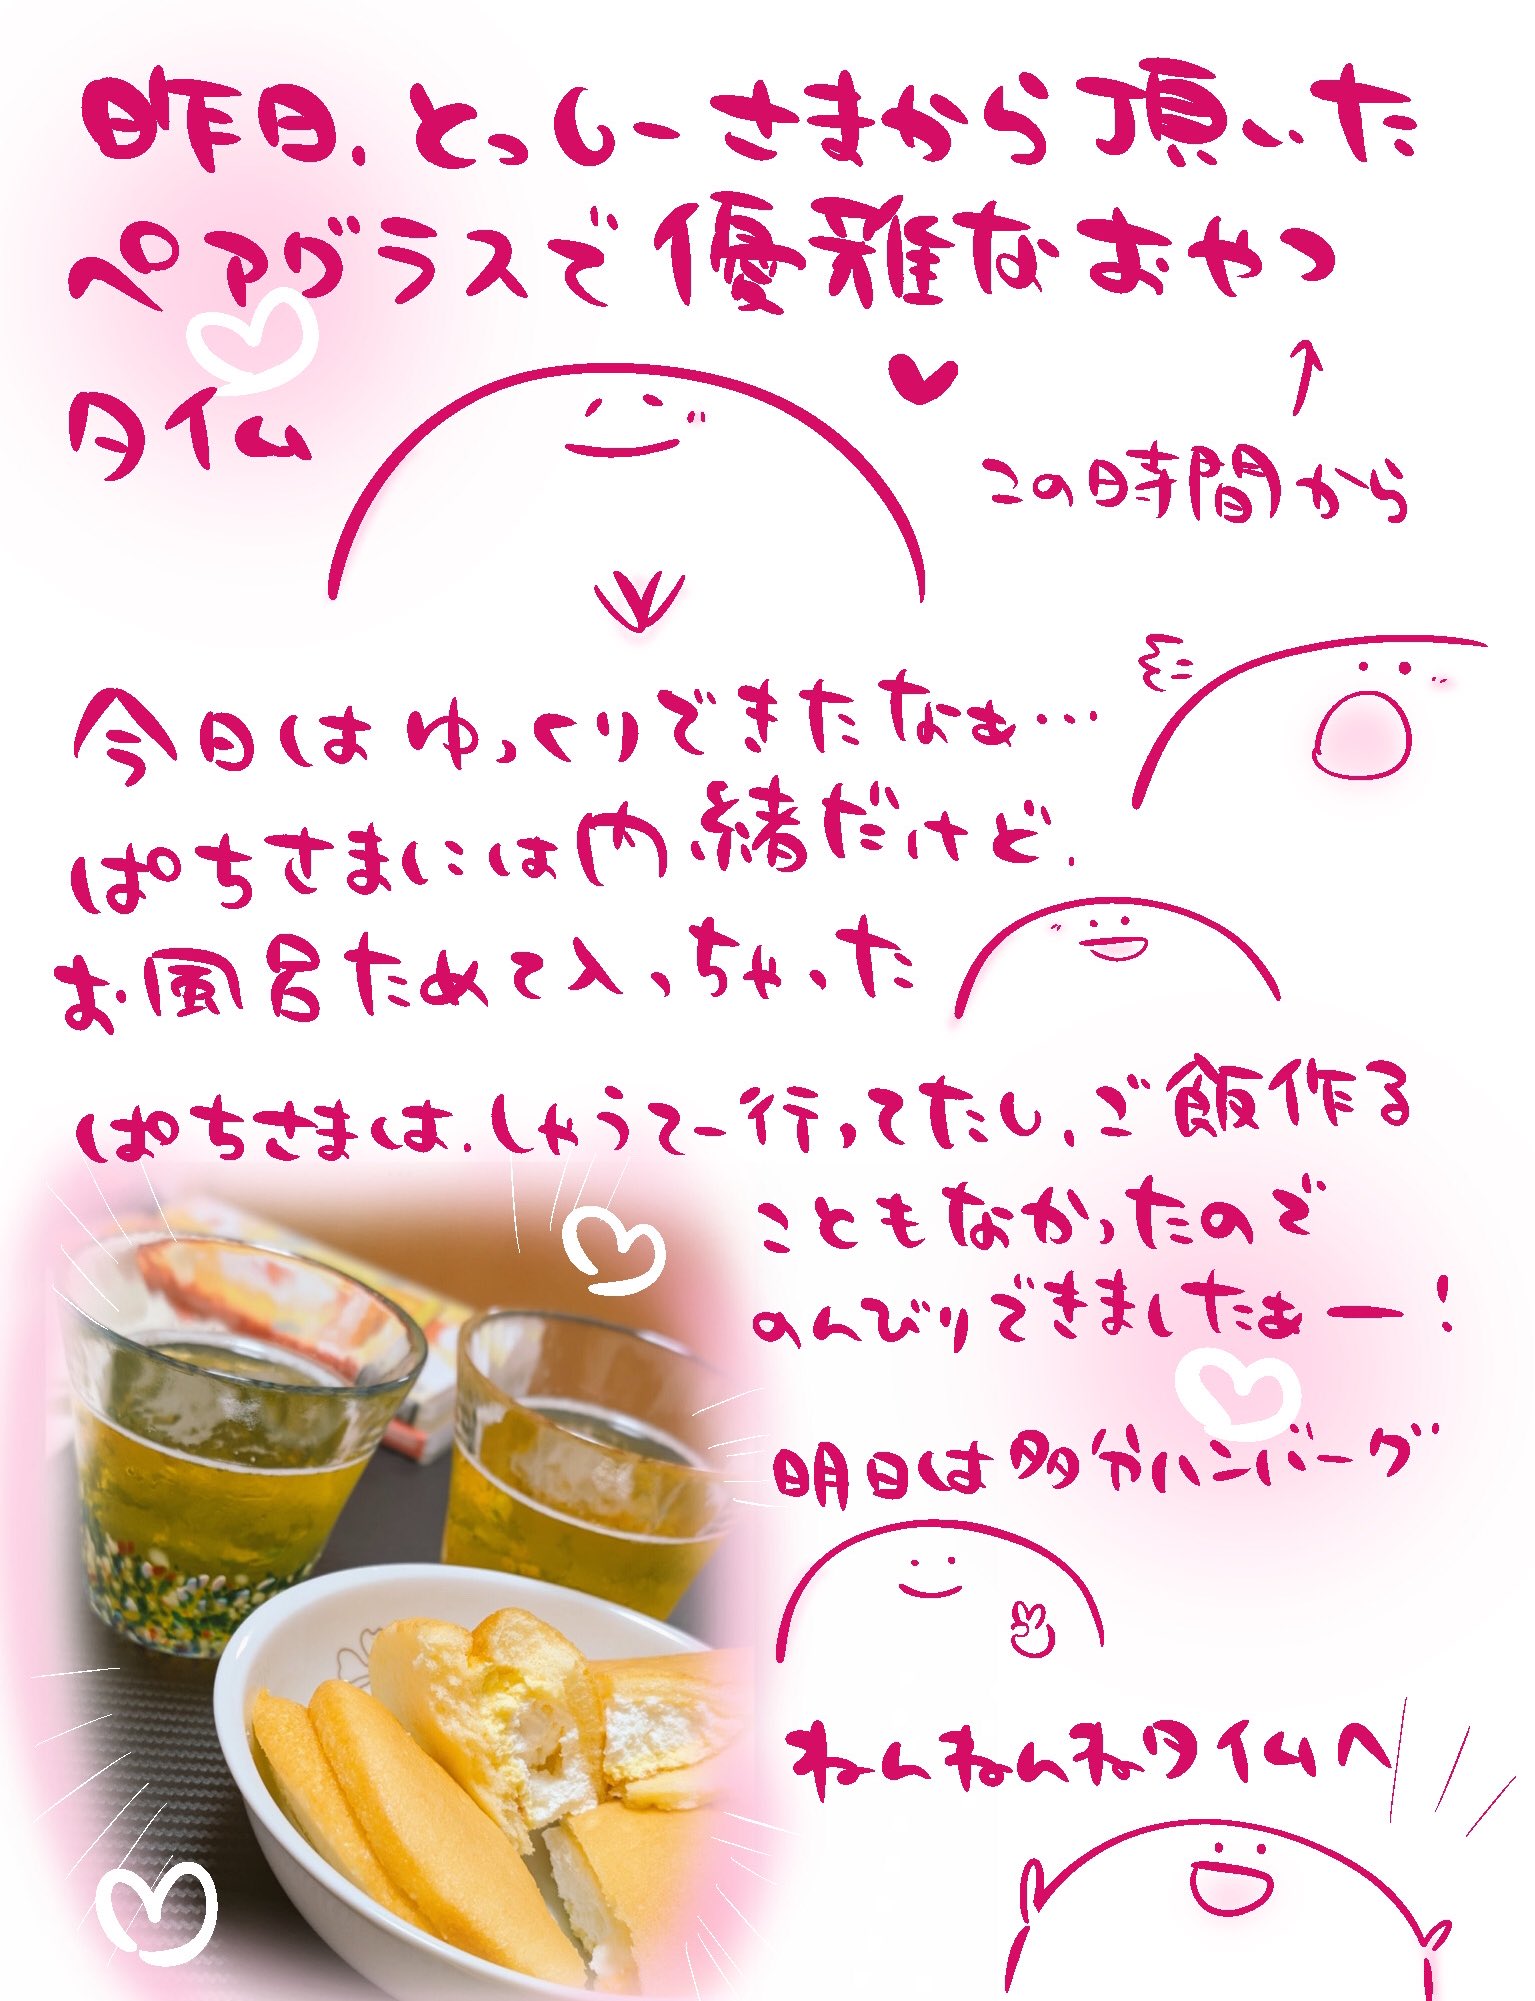 昨日、とっしーさまから頂いた
ペアグラスで優雅なおやつ
タイム
この時間から
今日はゆっくりできたなぁ…
ぱちさまには内緒だけど、
お風呂ためて入っちゃった
ぱちさまは、しゃうてー行ってたし、ご飯作る
こともなかったので
のんびりできましたぁー!
明日は多分ハンバーグ
ねんねんねタイムへ